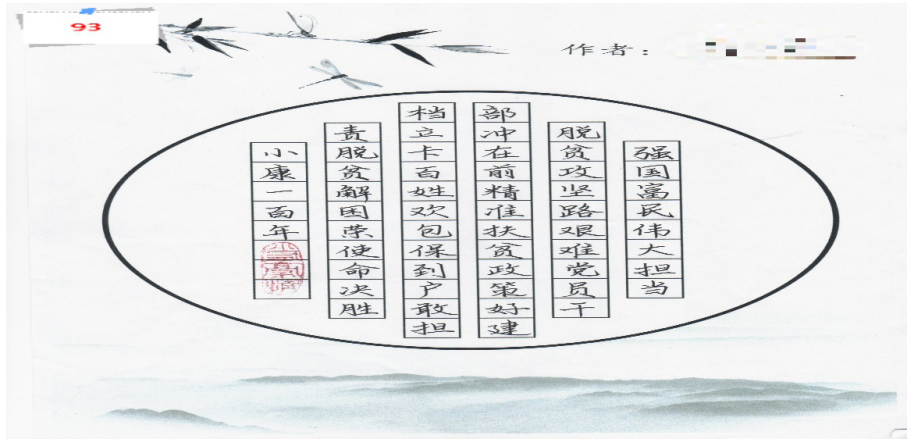 93
作者：
强国富民伟大担当
脱贫攻坚路艰难党员干
部冲在前精准扶贫政策好建
档立卡百姓欢包保到户敢担
责脱贫解困荣使命决胜
小康一百年